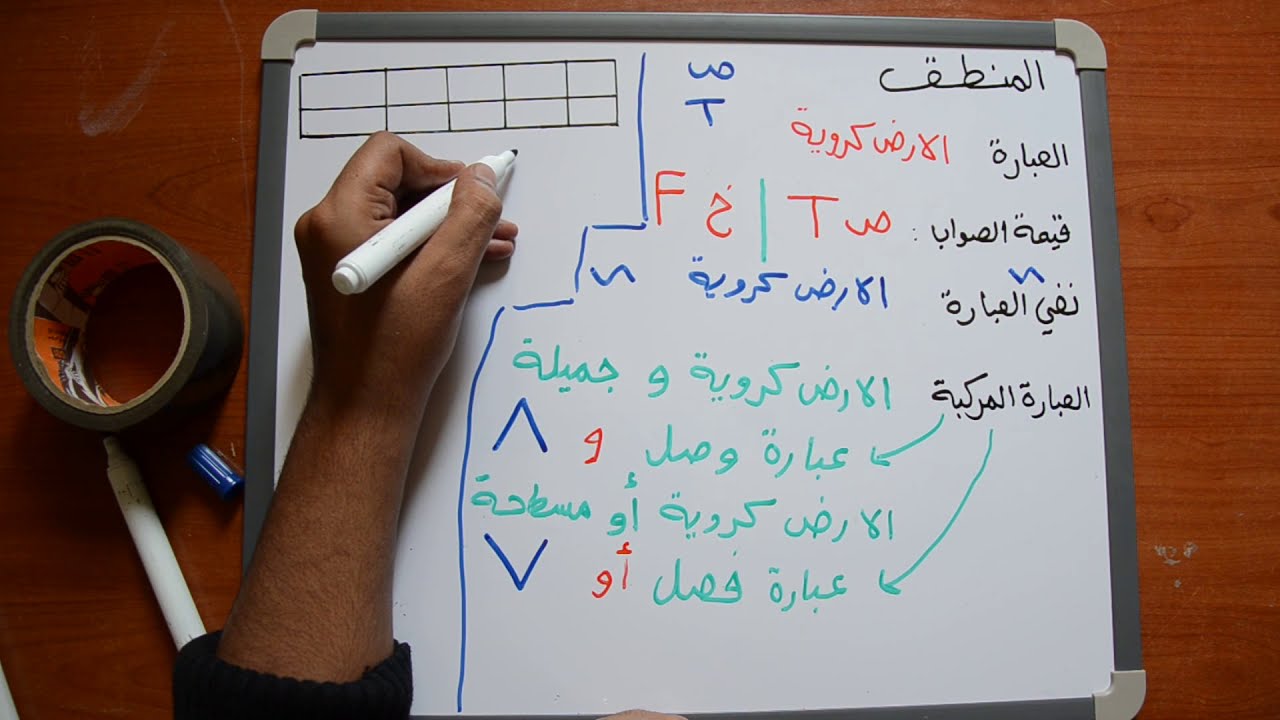 المنطق
ص
T
العبارة الارض كروية
قيمة الصواب : ص T | خ F
نفي العبارة ~ الارض كروية ~
العبارة المركبة الارض كروية و جميلة
عبارة وصل و ∧
الارض كروية أو مسطحة
عبارة فصل أو ∨